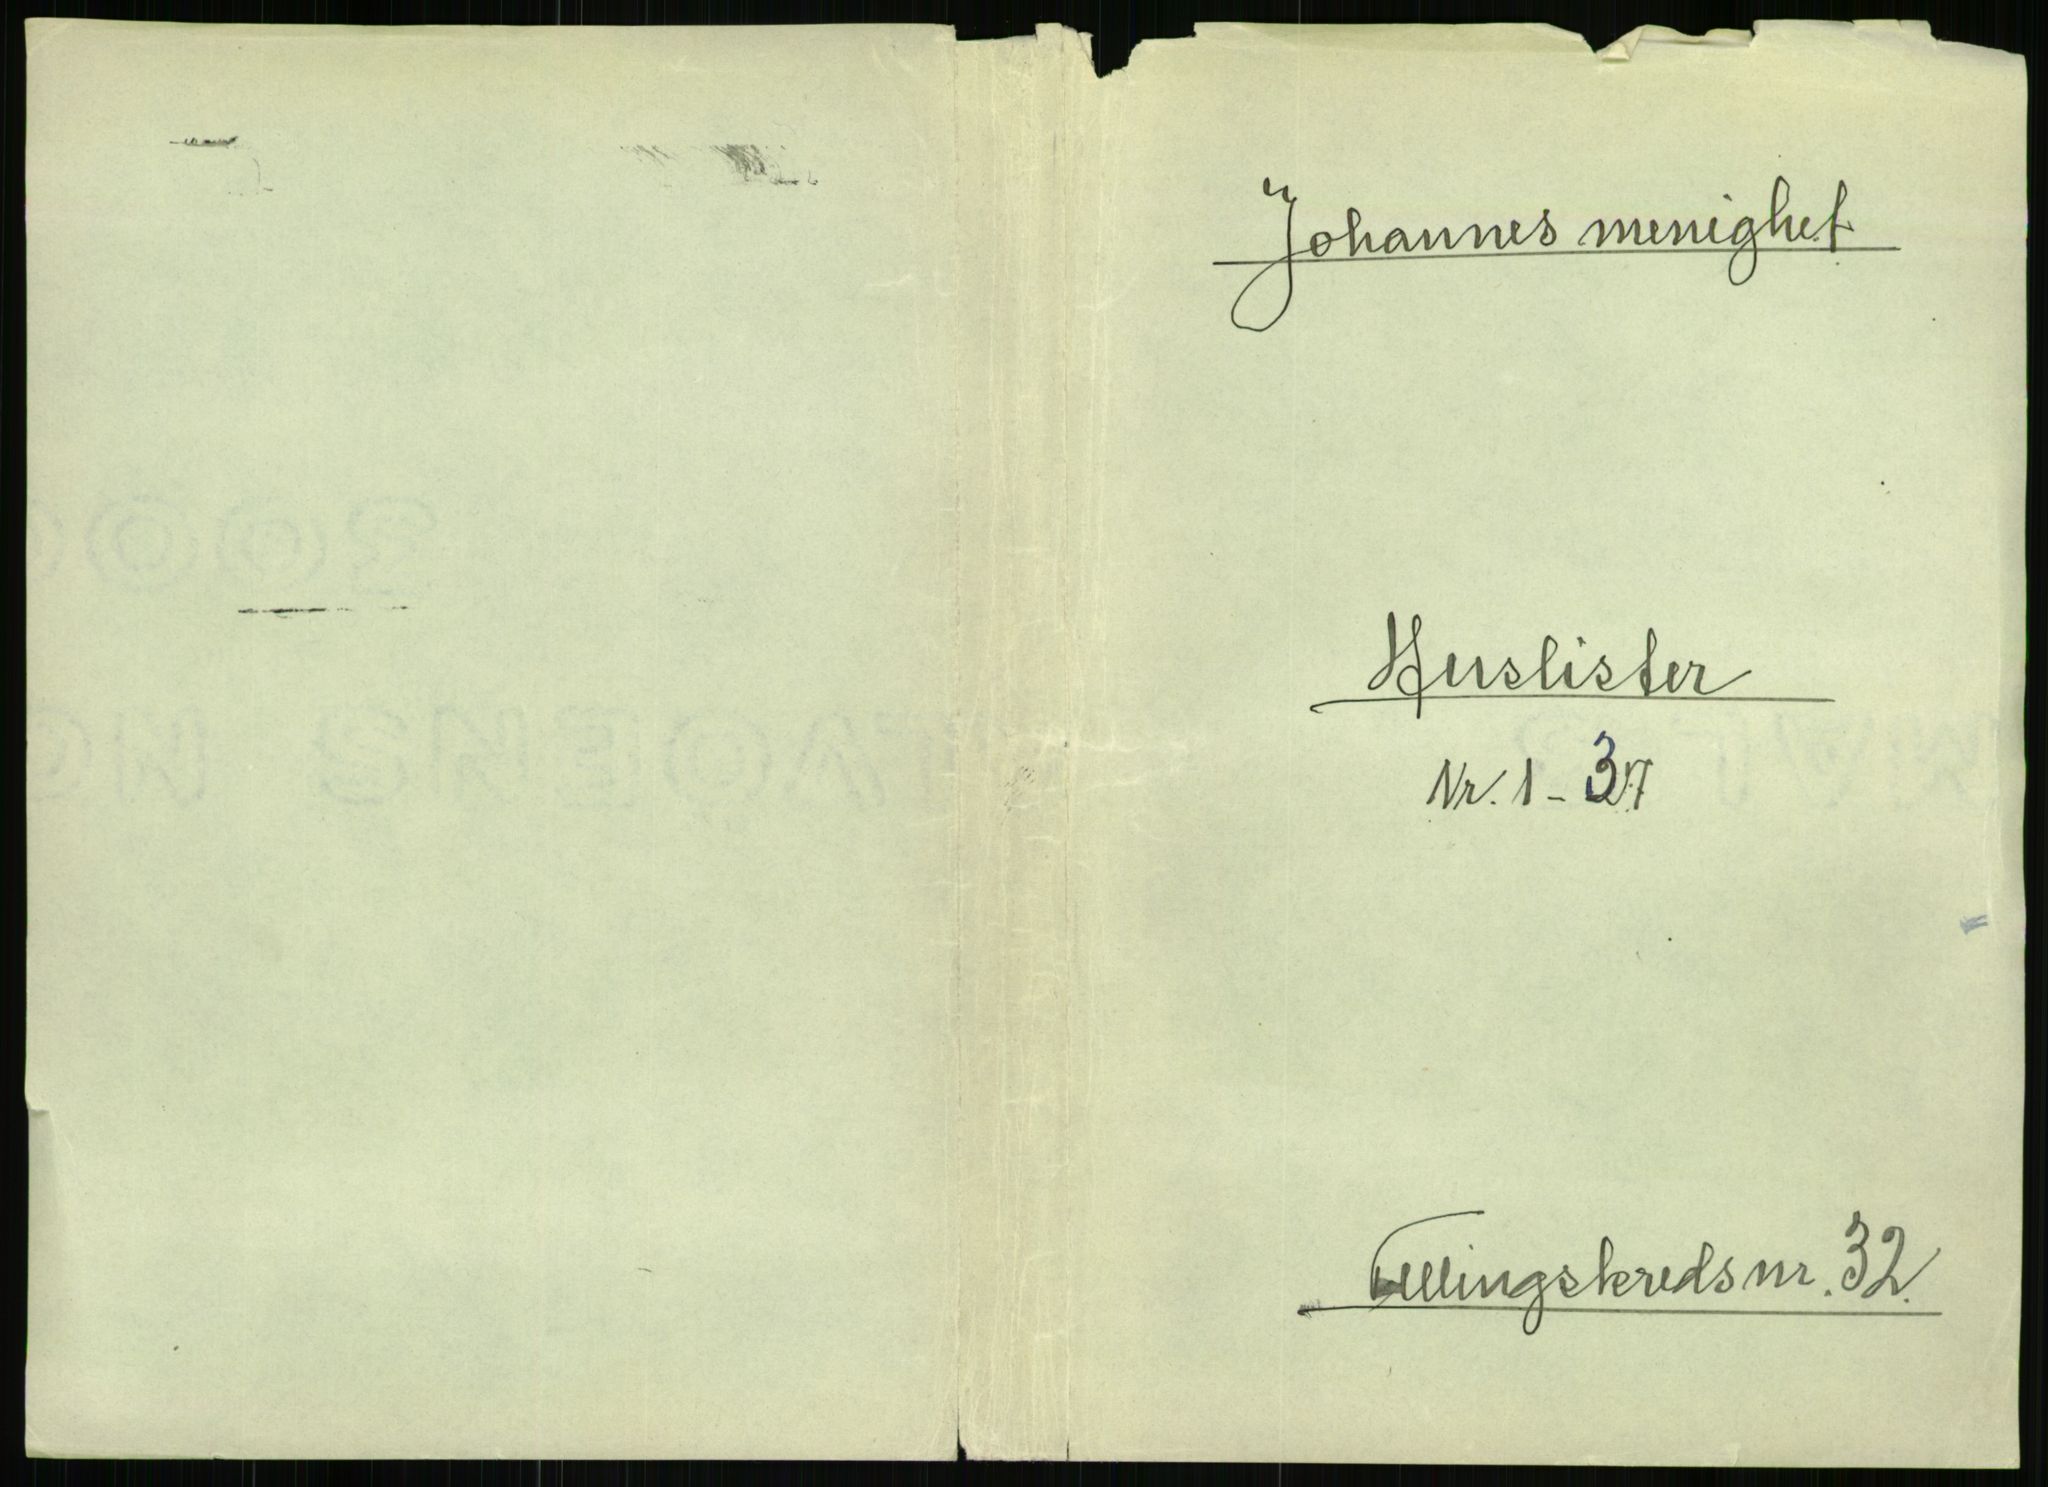 Johannes menighet
Huslister
Nr. 1 - 37
Tellingskreds nr. 32.